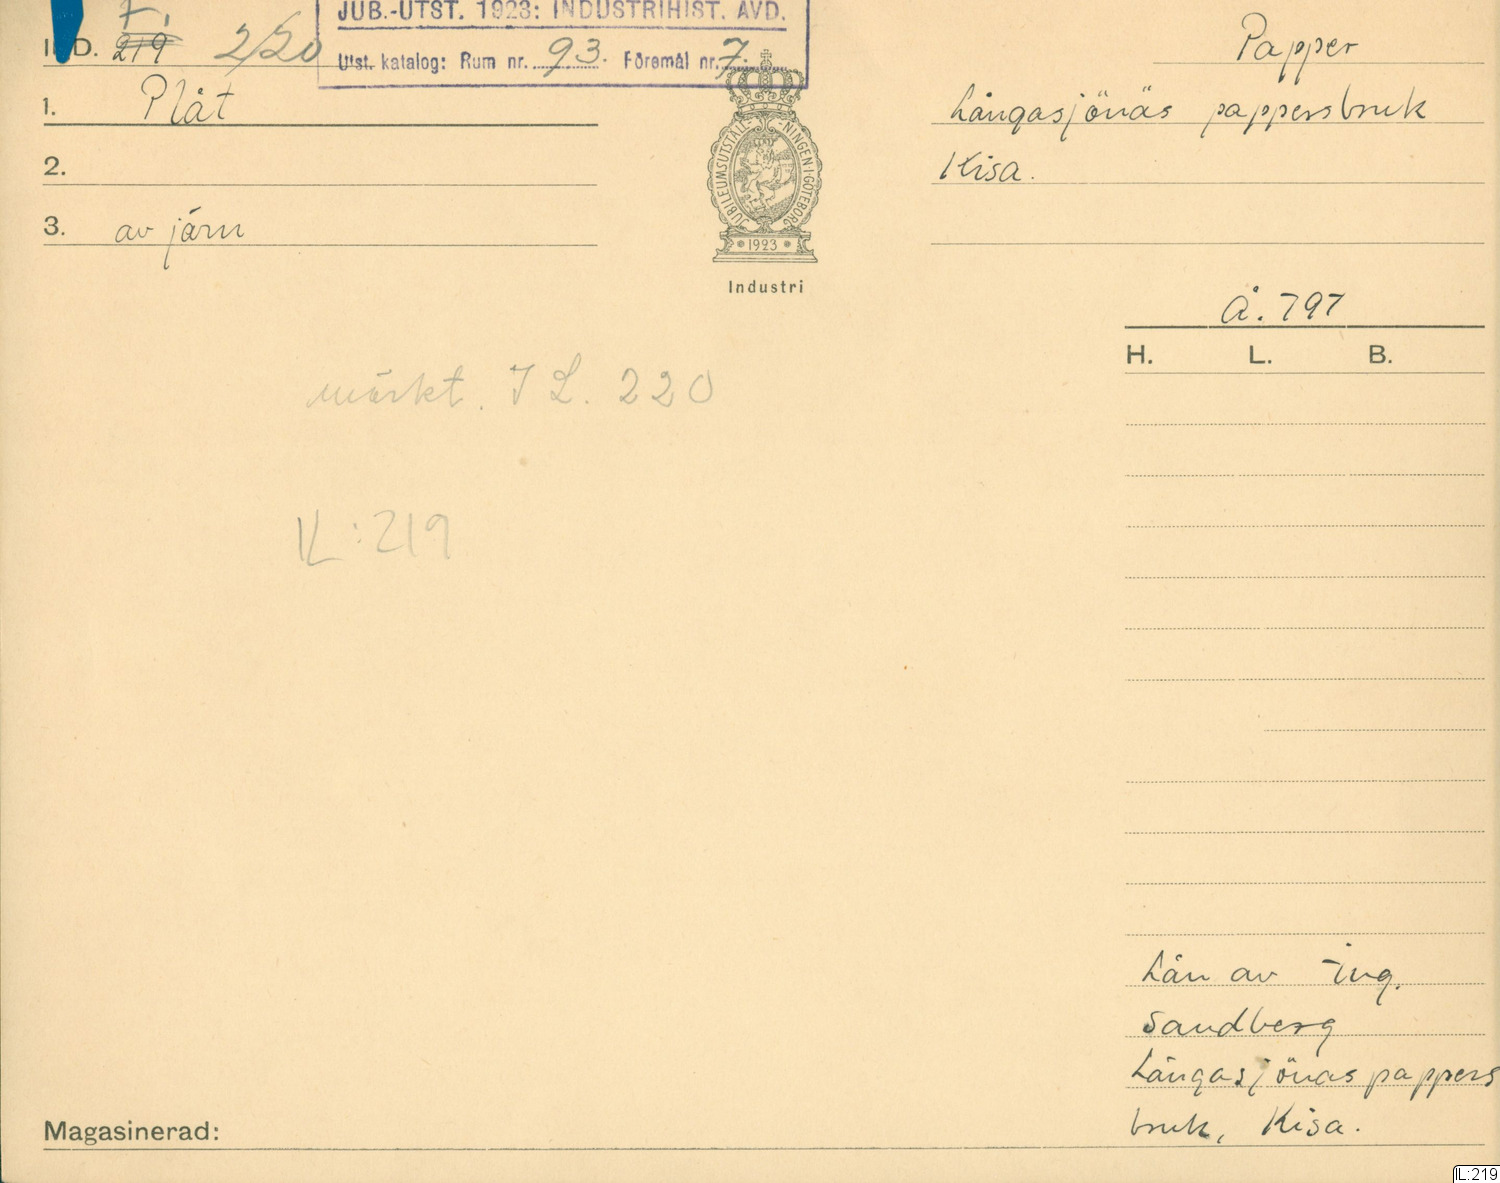 JUB.-UTST. 1923: INDUSTRIHIST. AVD.
Utst. katalog: Rum nr. 93. Föremål nr. 7.
7.
IND. 219 220
1. Plåt
2.
3. av järn
JUBILEUMSUTSTÄLLNINGEN I GÖTEBORG
1923
Industri
Papper
Långasjönäs pappersbruk
Kisa.
Å. 797
H. L. B.
märkt. I L. 220
IL:219
Lån av Ing.
Sandberg
Långasjönäs pappers
bruk, Kisa.
Magasinerad:
IL:219